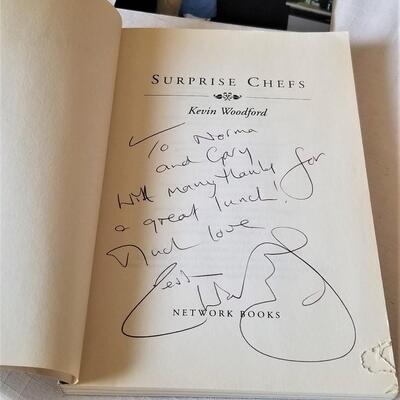 SURPRISE CHEFS
Kevin Woodford
To Norma
and Gary
With many thanks for
a great lunch!
Much love
NETWORK BOOKS